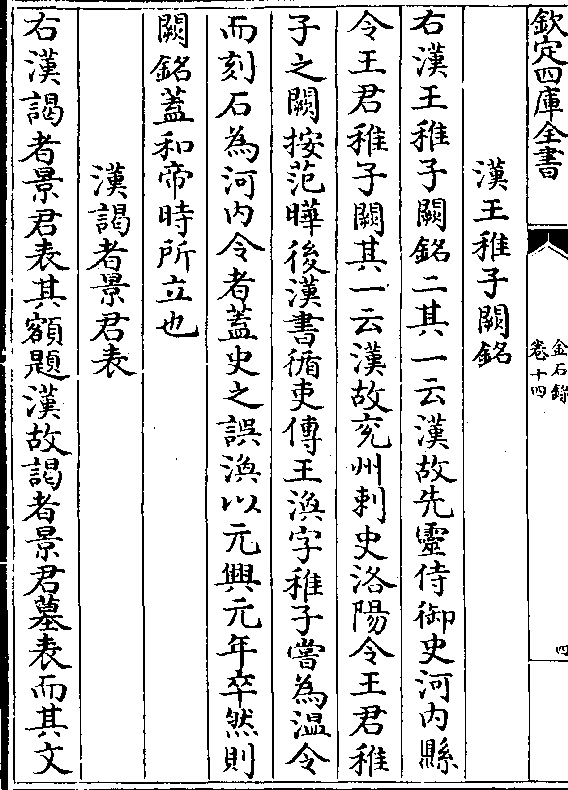 欽定四庫全書
金石錄
卷十四
四
漢王稚子闕銘
右漢王稚子闕銘二其一云漢故先靈侍御史河內縣
令王君稚子闕其一云漢故兖州刺史洛陽令王君稚
子之闕按范曄後漢書循吏傳王渙字稚子嘗為溫令
而刻石為河內令者蓋史之誤渙以元興元年卒然則
闕銘蓋和帝時所立也
漢謁者景君表
右漢謁者景君表其額題漢故謁者景君墓表而其文